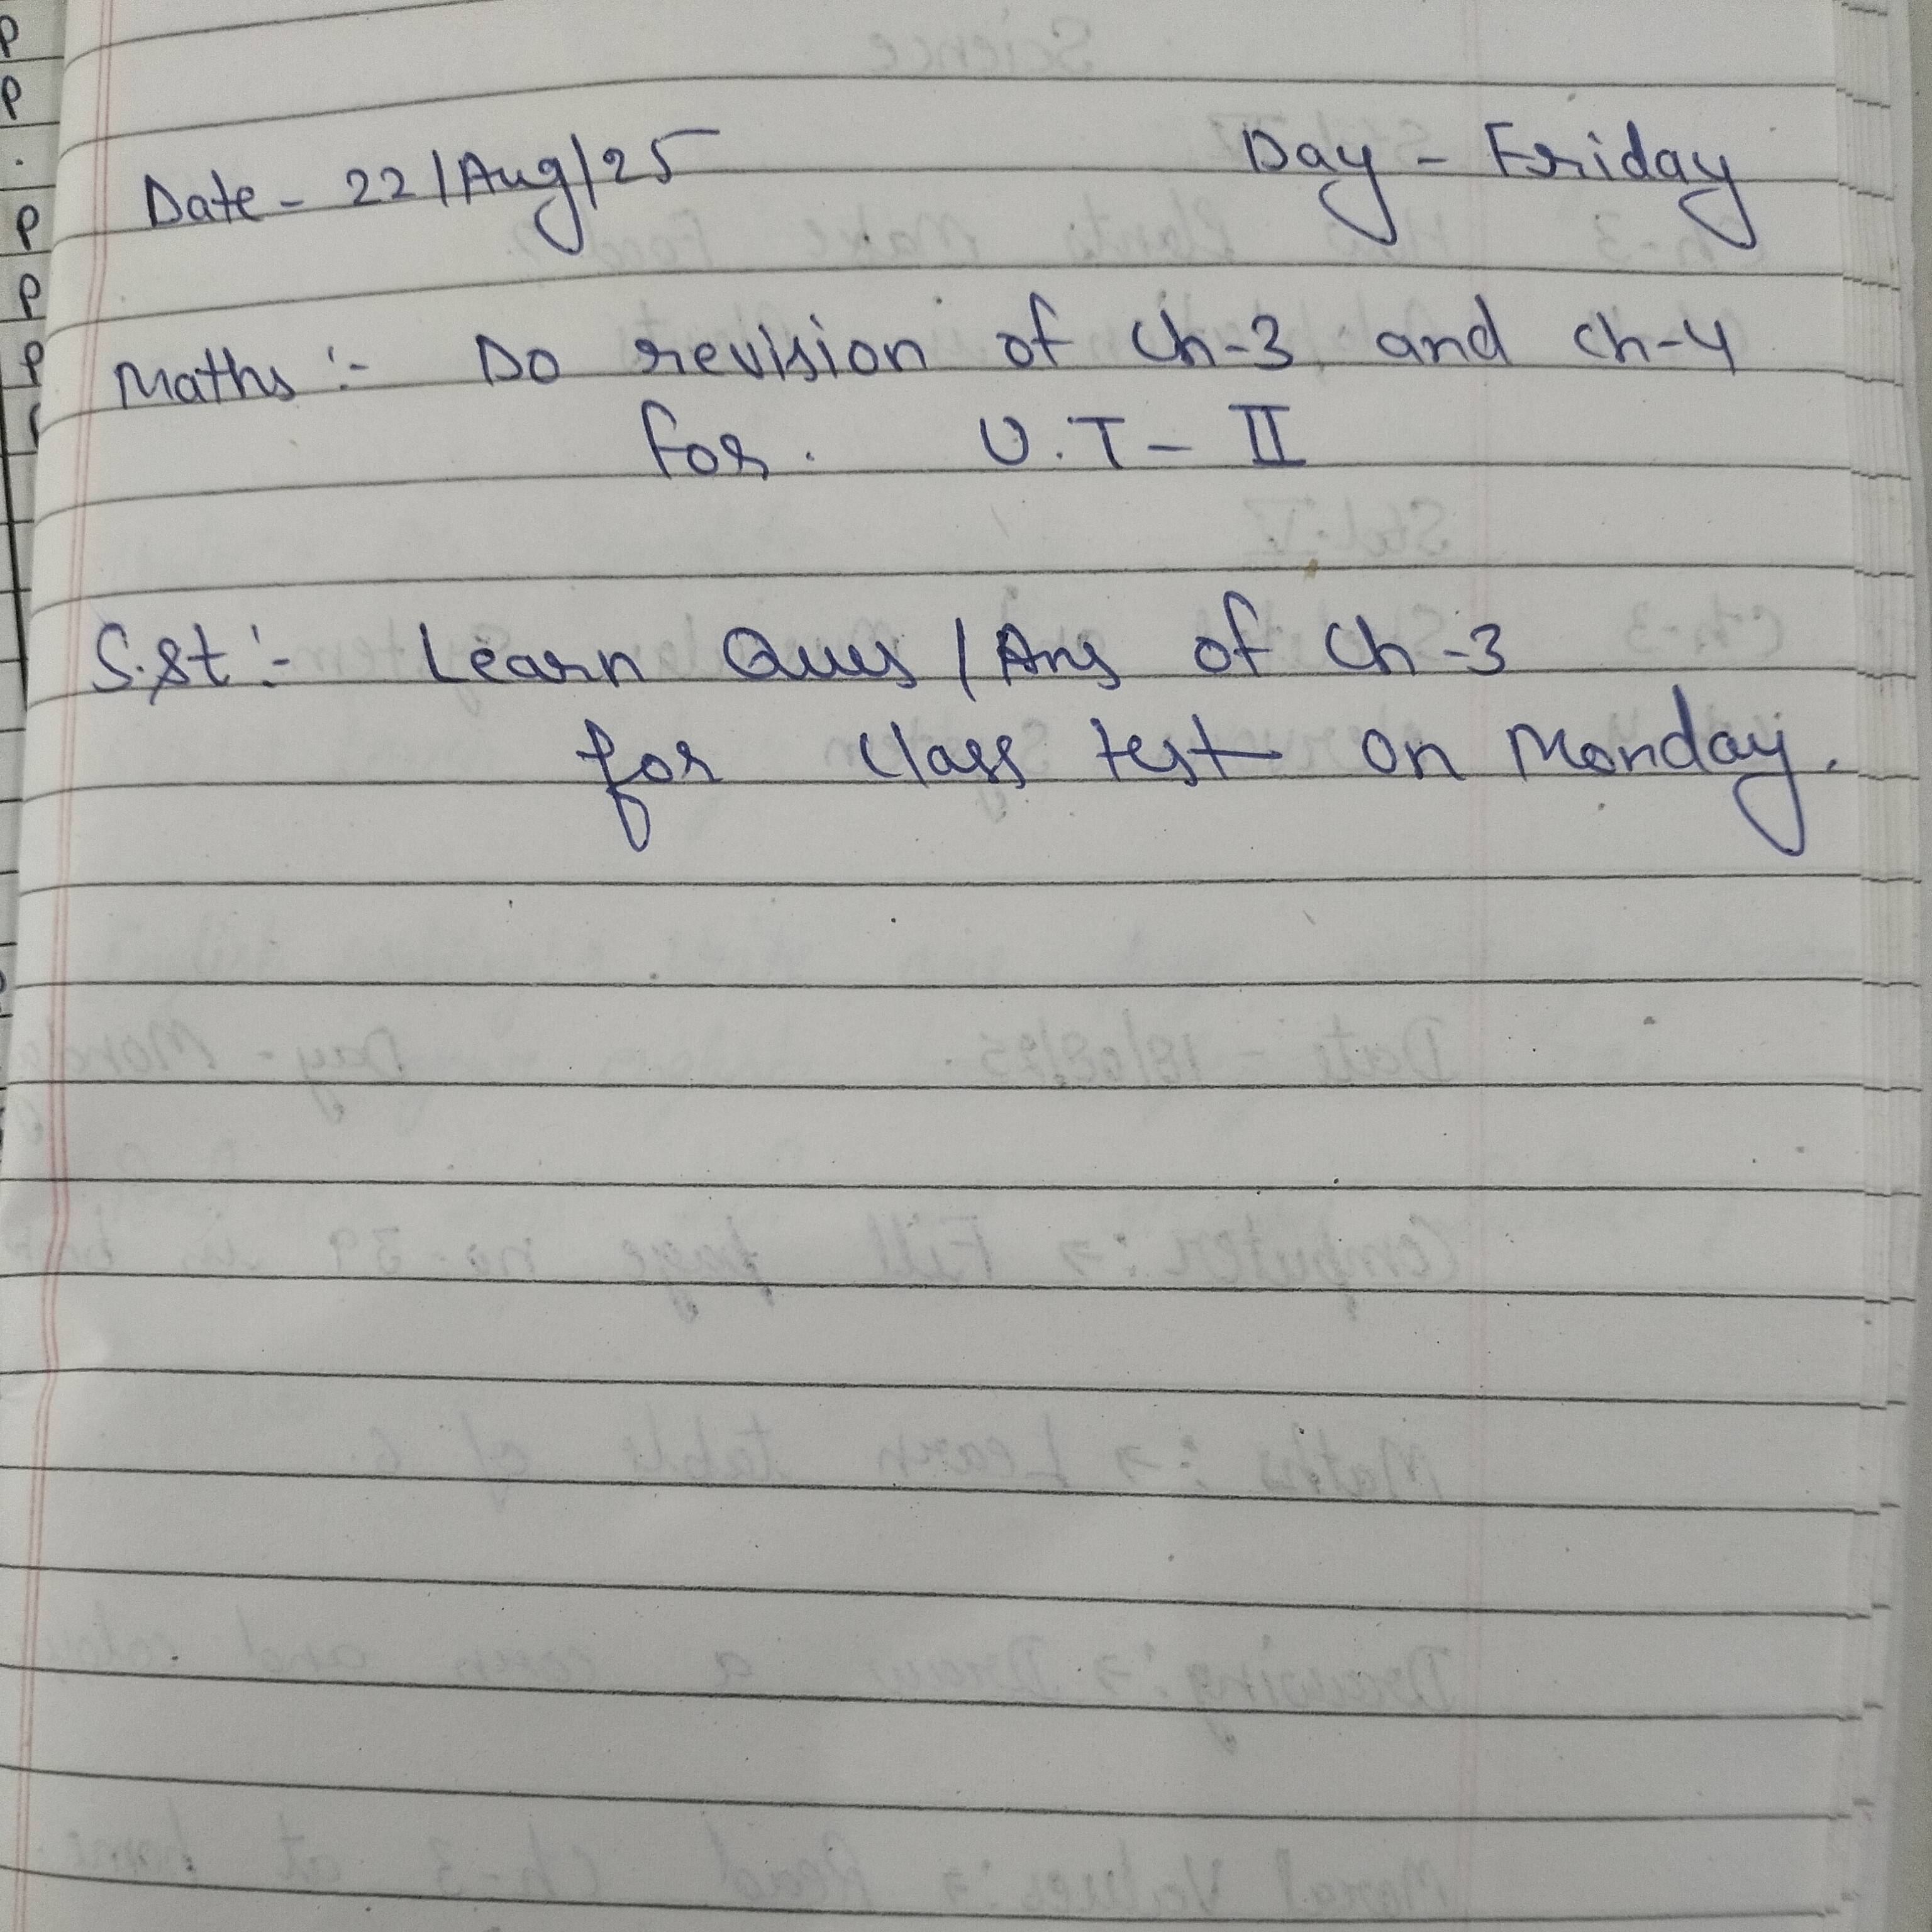 Date - 22/Aug/25 Day - Friday
Maths :- Do revision of Ch-3 and Ch-4
for. U.T- II
S.st :- Learn Ques / Ans of Ch-3
for Class test on Monday.